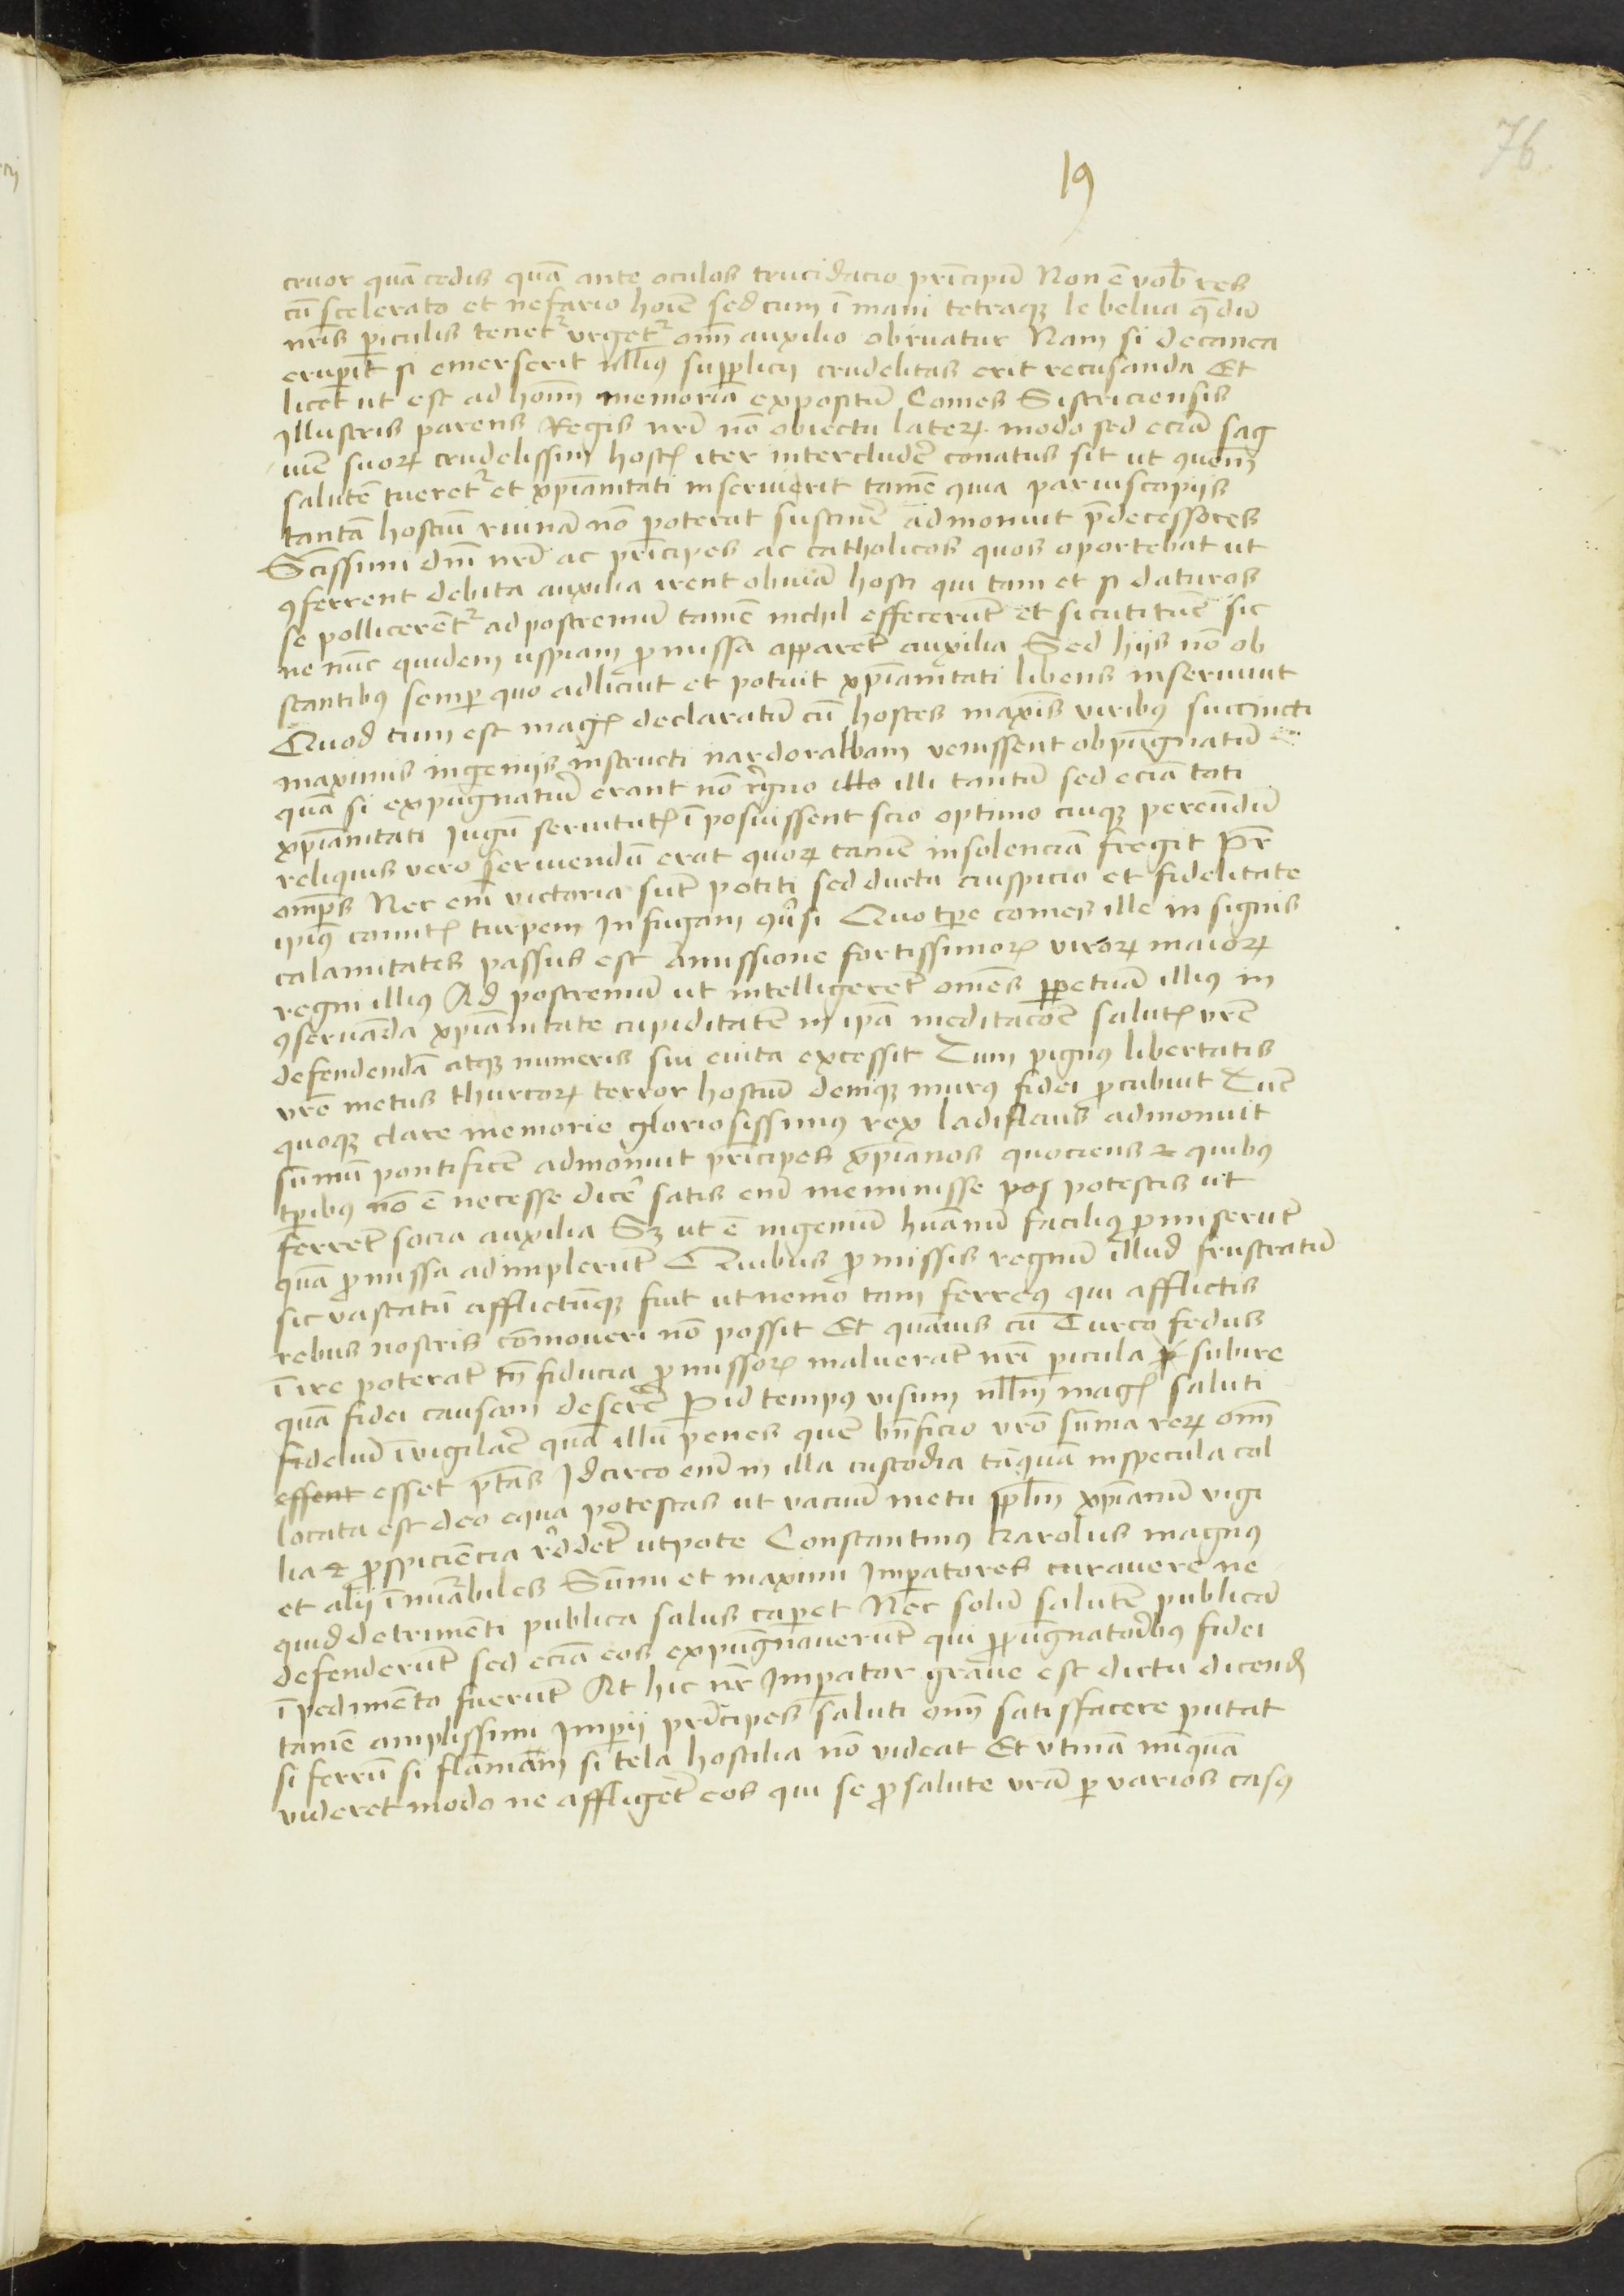 76
19
cruor quā cedis quā ante oculos trucidacio prīcipū Non ē vob̄ res
cū scelerato et nefario hoīe sed cum īmani tetraqꝫ le belua q̄ dū
nr̄is ꝑiculis tenetᷣ vrgetᷣ om̄ auxilio obruatur Nam si decauea
eruꝑit si emerserit nll̄iꝰ supplicij crudelitas erit recusanda Et
licet ut est ad hom̄ memoriā expositū Comes Bistriciensis
Illustris parens Regis nr̄i nō obiectu lateꝝ modo sed eciā sag
uīe suoꝝ crudelissim hostꝭ iter intercludēe conatus sit ut ꝯuem̄
salutē tueretᷣ et xp̄ianitati inseruierit tamē quia paruis copijs
tantā hostiū ruinā nō poterat sustinēe admonuit p̄decessores
Sctīssimi dn̄i nr̄i ac prīcipes ac catholicos quos oportebat ut
ꝯferrent debita auxilia irent obuiā hosti qui tam et si daturos
se pollicerentᷣ ad postremū tamē nichil effecerūt et sicuti tūc sic
ne nūc quidem uspiam ꝓmissa apparēt auxilia Sed hijs nō ob
stantibꝰ semꝑ quo adlicuit et potuit xp̄ianitati libens inseruiuit
Quod tum est magꝭ declaratū cū hostes maxīs viribꝰ succincti
maximis ingenijs instructi nandoralbam venissent obpūgnatū
quā si expūgnaturi erant nō regno illo illi tantū sed eciā toti
xp̄ianitati Iugū seruitutꝭ īposuissent scio optimo cuiqꝫ pereūdū
reliquis vero seruiendū erat quoꝝ tamē insolenciā fregit Pr̄
omp̄s Nec em̄ victoria sūt potiti sed ductu auspicio et fidelitate
ip̄iꝰ comitꝭ turpem in fugam ꝯūsi Quo tp̄e comes ille insignis
calamitates passus est amissione fortissimoꝝ viroꝝ maioꝝ
regni illiꝰ Ad postremū ut intelligerēt omēs ꝑpetuā illiꝰ in
ꝯseruāda xp̄ianitate cupiditatē in ip̄a meditacōe salutꝭ vr̄e
defendendā atqꝫ numeris sui euita excessit Tum pignꝰ libertatis
vr̄e metus thurcoꝝ terror hostiū deniqꝫ murꝰ fidei ꝓcubuit Tūc
quoqꝫ clare memorie gloriosissimꝰ rex ladislaus admonuit
sūmū pontificē admonuit prīcipes xp̄ianos quociens ⁊ quibꝰ
tꝑibꝰ nō ē necesse dicēe satis em̄ meminisse vos potestis ut
ferrēt socia auxilia Sꝫ ut ē ingeniū huānū faciliꝰ ꝓmiserūt
quā ꝓmissa adimplerūt Quibus ꝓmissis regnū illud frustratū
sic vastatū afflictūqꝫ fuit ut nemo tam ferreꝰ qui afflictis
rebus nostris cōmoueri nō possit Et quāuis cū Turco fedus
īire poterāt tn̄ fiducia ꝓmissoꝝ maluerāt nr̄i ꝑicula subire
quā fidei causam deserēe P id tempꝰ visum nll̄m magꝭ saluti
fideliū īvigilaēe quā illū penes quē bn̄ficio vr̄o sūma reꝝ om̄
essent esset ptās Idcirco em̄ in illa custodia tāquā in specula col
locata est deo equa potestas ut vacuū metu ppl̄m xp̄ianū vigi
lia ⁊ ꝓspiciēcia rēddēt utpote Constantinꝰ karolus magnꝰ
et alij īnuᷓabiles Sūmi et maximi Imꝑatores curauere ne
quid detrimenti publica salus caꝑet Nec solū salutē publicā
defenderūt sed eciā eos expūgnauerūt qui ꝓpūgnatoribꝰ fidei
īpedimento fuerūt At hic nr̄ Imꝑator graue est dictu dicend
tamē amplissimi Imꝑij prīcipes saluti om̄ satisfacere putat
si ferrū si flāmam si tela hostilia nō videat Et vtinā nūquā
videret modo ne affligēt eos qui se ꝓ salute vr̄a ꝑ varios casꝰ